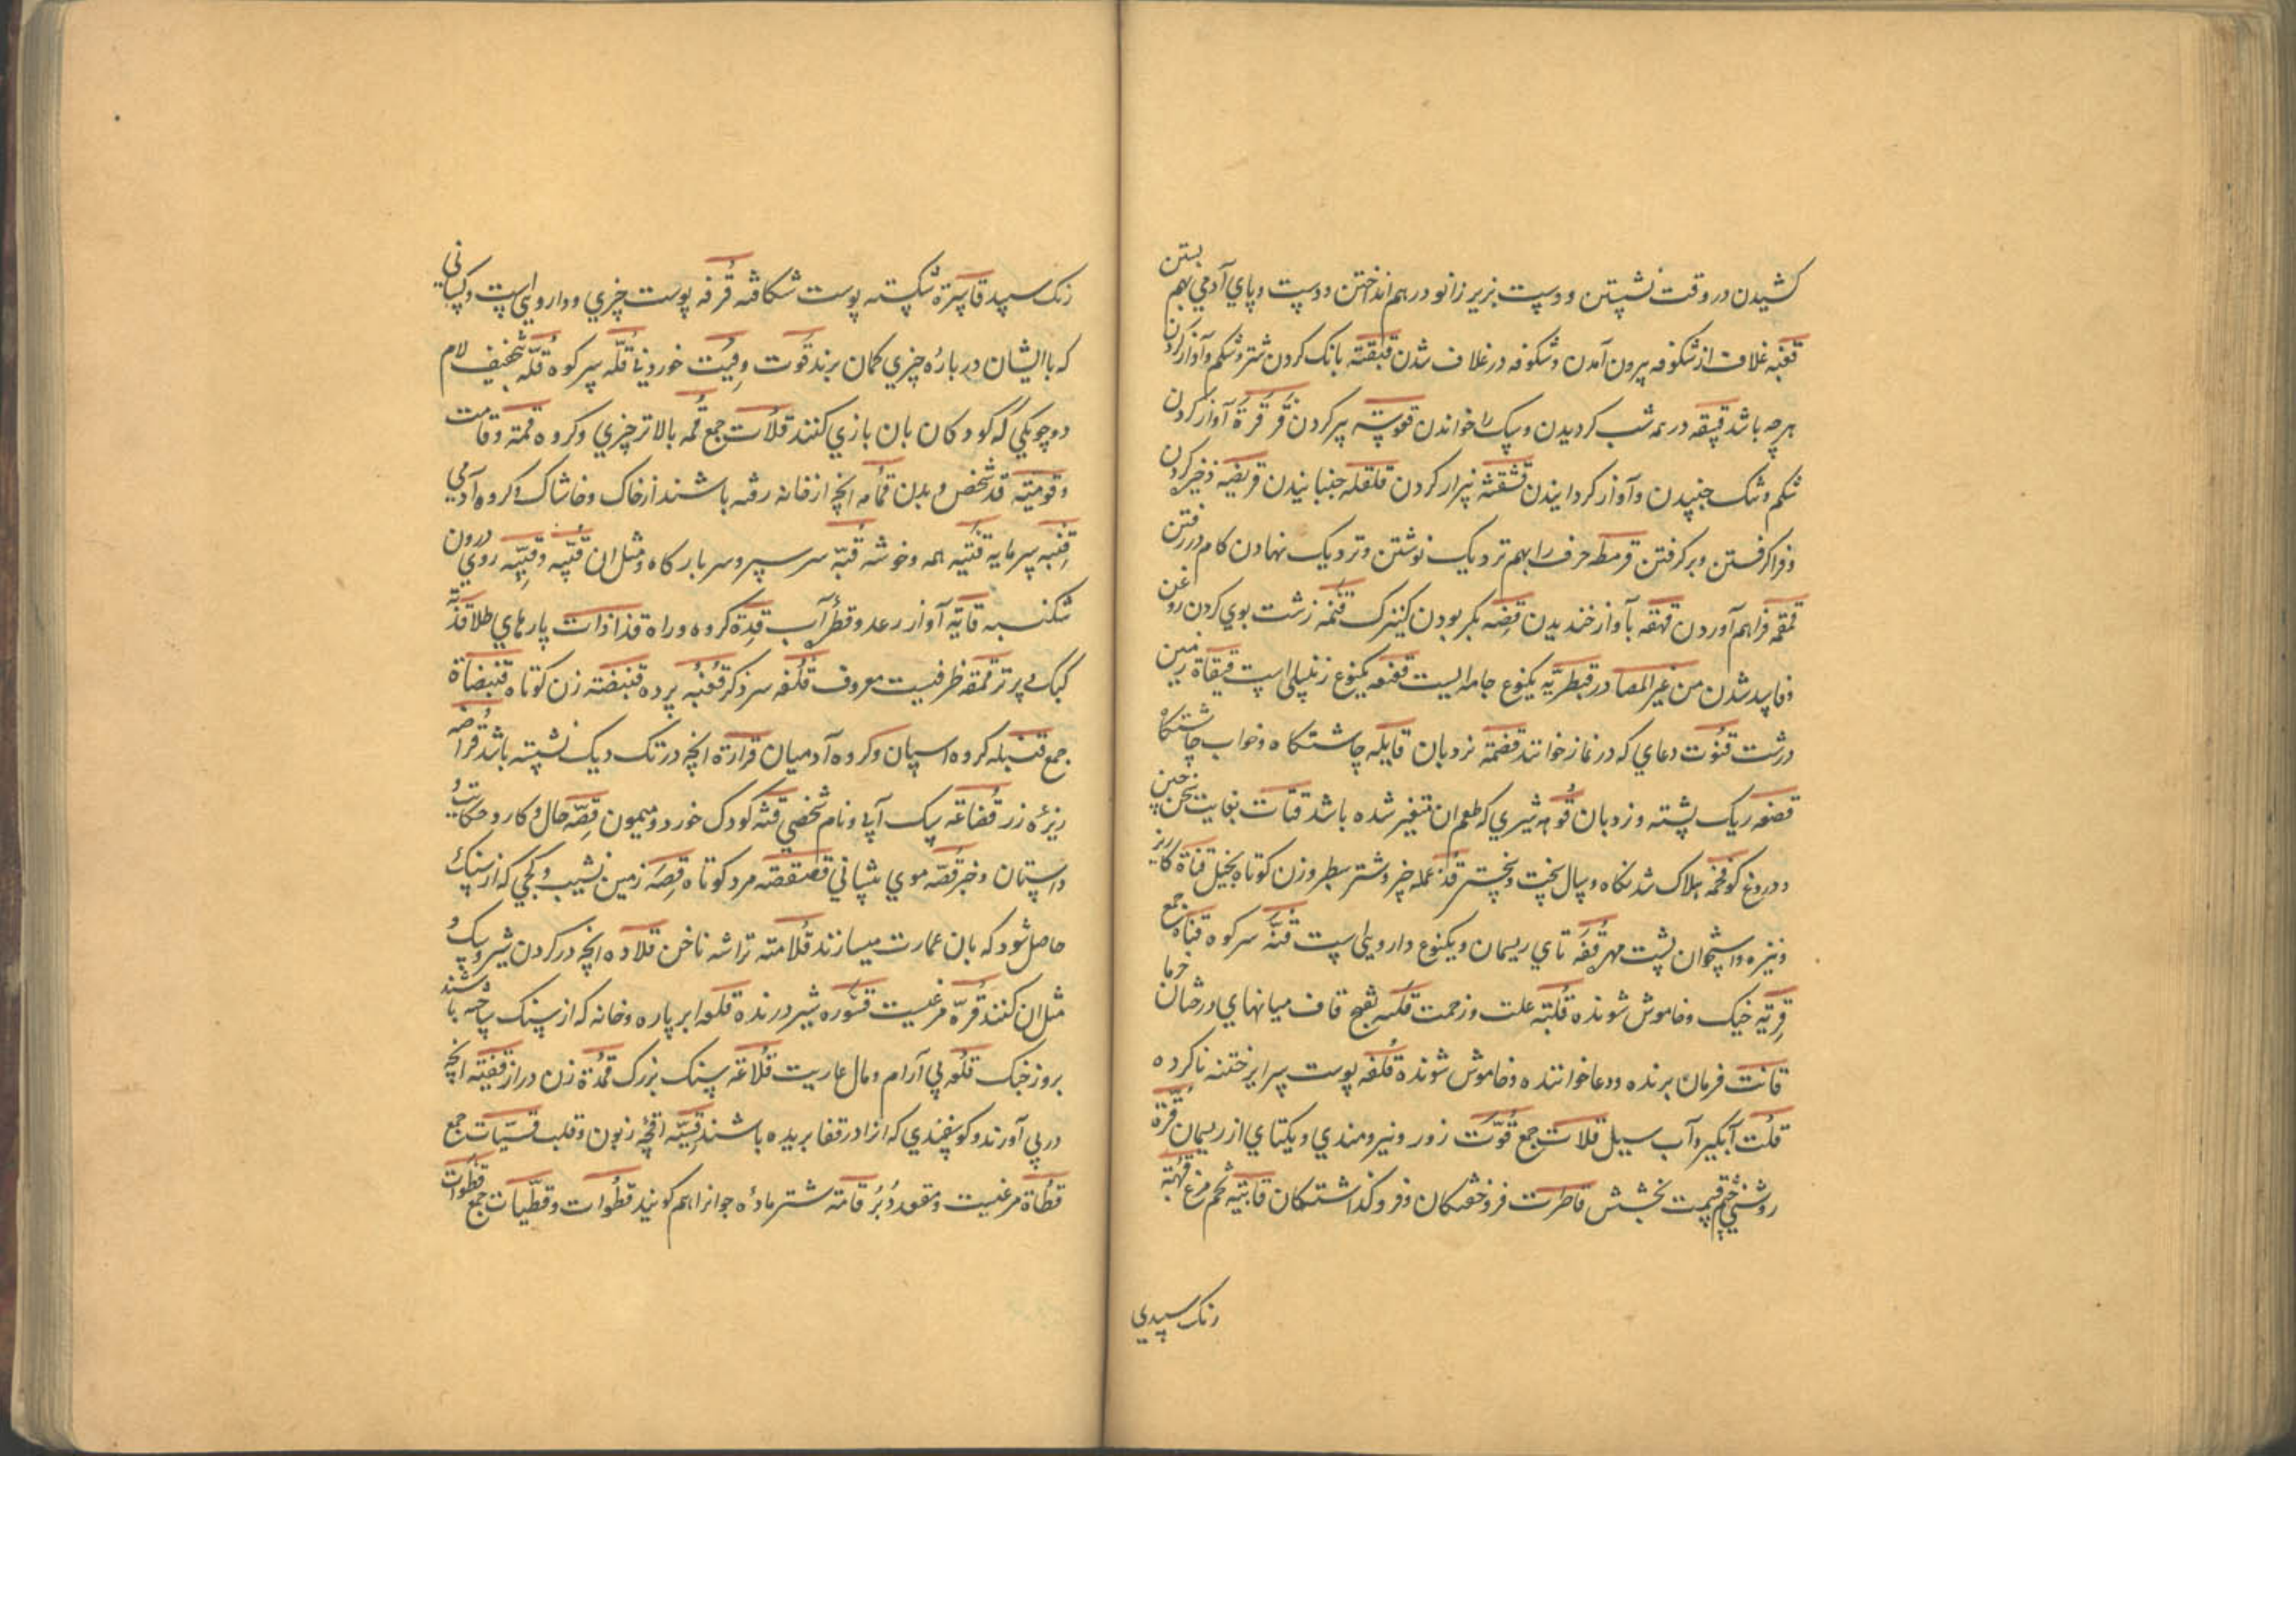 کشیدن در وقت نشستن و دست بزیر زانو در هم انداختن و دست و پای آدمی بهم بستن
قعنبه غلاف از شکوفه بیرون آمدن و شکوفه در غلاف شدن قبقبته بانک کردن شتر و شکم و آواز کردن
هرچه باشد قیقه در نمه شب کردیدن و سک را خواندن پیر کردن قرقرة آواز کردن
شکم و شک جنبیدن و آواز کردانیدن قشقشه بیزار کردن قلقله جنبانیدن قریضه ذخیر کردن
و فرا کرفتن و بر کرفتن قرمطه حرف را بهم نزدیک نوشتن و نزدیک نهادن کام در رفتن
قمقمه فراهم آوردن قهقه بآواز خندیدن قضه بکر بودن کنیزک قنمه زشت بوی کردن روغن
و فاسد شدن من غیر المصادر قبطریه یکنوع جامه ایست قفعه یکنوع زنبیلی است قیقاة زمین
درشت قنوت دعای که در نماز خوانند قضمة نردبان قایله چاشتکاه و خواب چاشتکاه
قضعه ریک پشته و نردبان قوهه شیری که طعم ان متغیر شده باشد قتات بغایت سخن چین
و دروغ کو قحمه هلاک شدنکاه و سال سخت و سختر قذعمله خبر و شتر سطبر و زن کوتاه بخیل قناة کاریز
و نیزه و استخوان پشت مهر قفه تای ریسمان و یکنوع داروئی است قنه سر کوه قناه جمع
قربه خیک و خاموش شونده قلبه علت و زحمت قلسه بفتح قاف میانهای درختان خرما
قانت فرمان برنده و دعا خواننده و خاموش شونده قلفه پوست سر ایر ختنه ناکرده
قلت آبکیر و آب سیل قلات جمع قوت زور و نیرومندی و یکتای از ریسمان قرة
روشنی چشم قیمت بخشش قاطرت فروختکان و فرو کذاشتکان قابیه تخم مرغ قهبه
رنک سپیدی
رنک سپید قاسرة شکسته پوست شکافته قرفه پوست چیزی و داروئی است و کسانی
که با ایشان در باره چیزی کمان برند قوت وقیت خوردنی قله سر کوه قله بتخفیف لام
دو چوبکی که کودکان بان بازی کنند قلات جمع قمه بالاتر چیزی و کروه قمة و قامت
و قومیة قد شخص و بدن قمامه انچه از خانه رفته باشند از خاک و خاشاک و کروه آدمی
قنبه سرمایه قنیه همه و خوشه قبه سر سپر و سر بارکاه و مثل ان قبیه و قبیبه روی درون
شکنبه قایة آواز رعد و قطر آب قدة کروه و راه قذاذات پارهای طلا قذة
کبک بی پر تر قمقمه ظرفیست معروف قلفه سر ذکر قعنبه پرده قنبضه زن کوتاه قنبضاة
جمع قنبله کروه اسپان و کروه آدمیان قرارة انچه در تک دیک نشسته باشد قراضه
ریزه زر قضاعه سک آبی و نام شخصی قشه کودک خورد و میمون قصه حال و کار و حکایت و
داستان و خبر قصه موی پیشانی قصنقصه مرد کوتاه قصه زمین نشیب و کجی که از سنک
حاصل شود که بان عمارت میسازند قلامة تراشه ناخن قلاده انچه در کردن شیر و سک و
مثل ان کنند قره مرغیست قسوره شیر درنده قلعه ابر پاره و خانه که از سنک ساخته باشند
بروز جنک قلعه بی آرام و مال عاریت قلاعه سنک بزرک قمدة زن دراز قفیه انچه
در پی آورند و کوسفندی که انرا در قفا بریده باشند قسیه اقچه زبون و قلب قسیات جمع
قطاة مرغیست و مقعد و دبر قامة شتر ماده جوانرا هم کویند قطوات و قطیات جمع قطوات